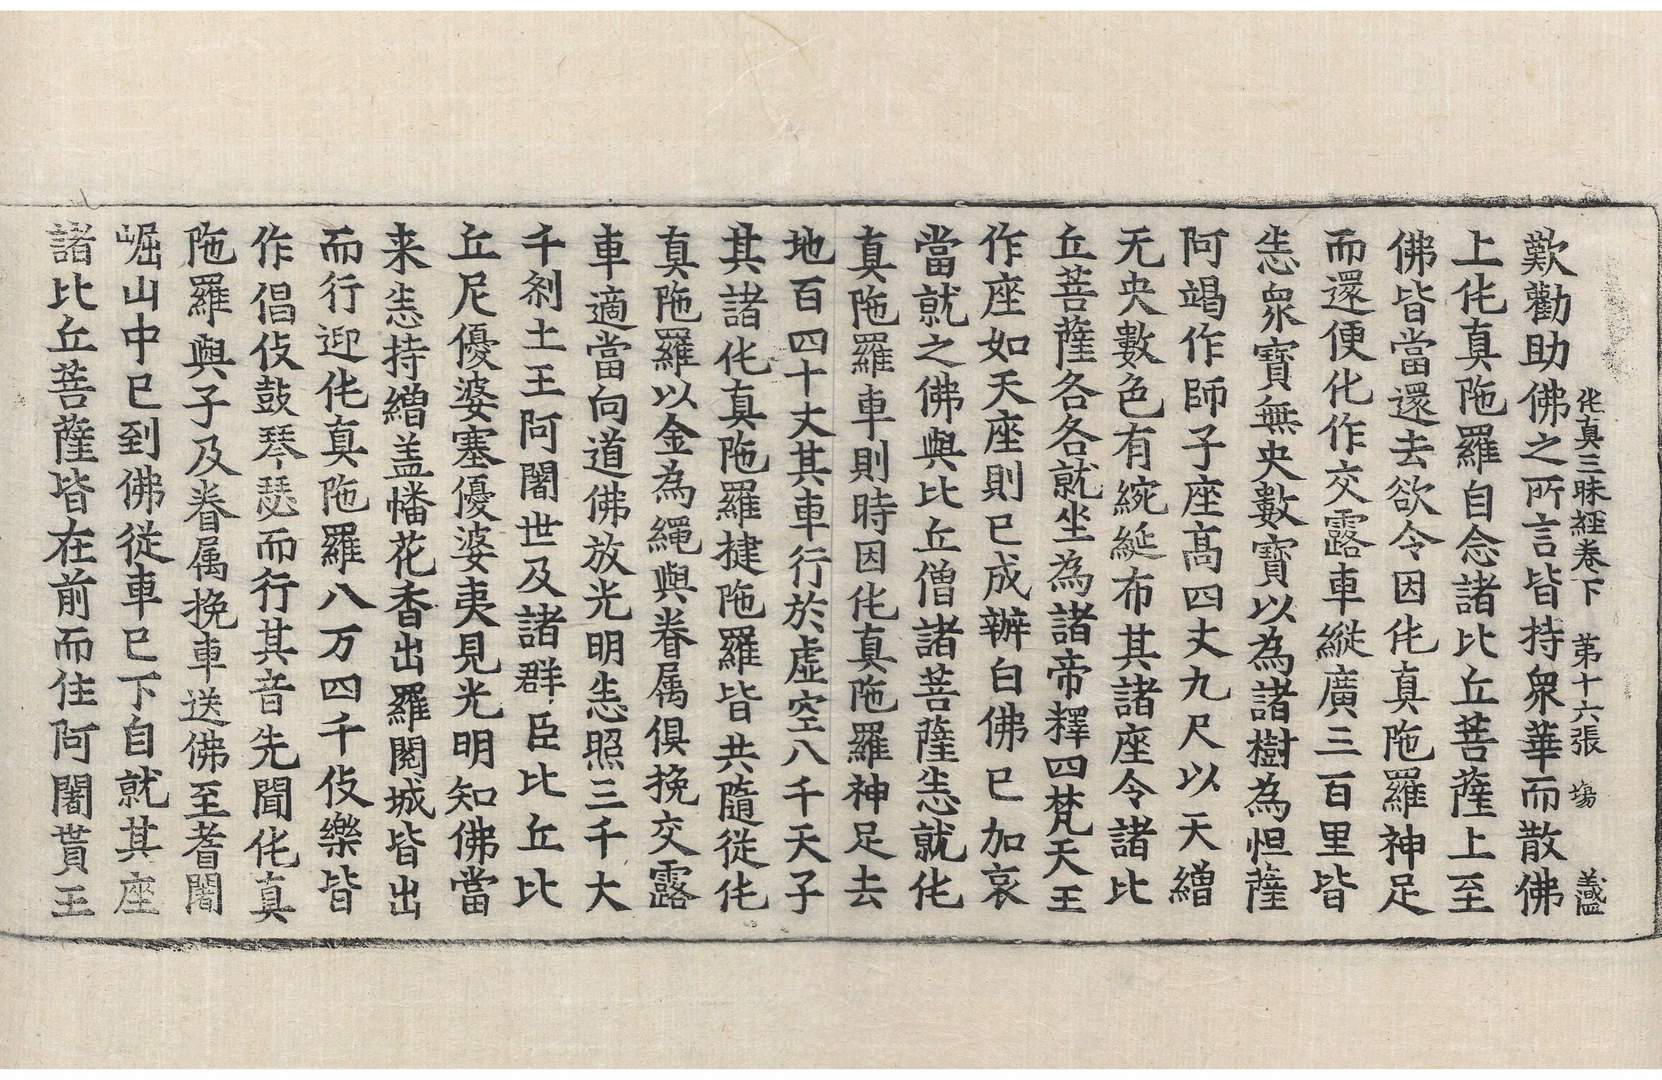 伅真三昧經卷下 第十六張 場 義盛
歎勸助佛之所言皆持衆華而散佛
上伅真陁羅自念諸比丘菩薩上至
佛皆當還去欲令因伅真陁羅神足
而還便化作交露車縱廣三百里皆
恣衆寶無央數寶以為諸樹為怛薩
阿竭作師子座高四丈九尺以天繒
无央數色有綩綖布其諸座令諸比
丘菩薩各各就坐為諸帝釋四梵天王
作座如天座則已成辦白佛已加哀
當就之佛與比丘僧諸菩薩恣就伅
真陁羅車則時因伅真陁羅神足去
地百四十丈其車行於虛空八千天子
其諸伅真陁羅揵陁羅皆共隨從伅
真陁羅以金為繩與眷属俱挽交露
車適當向道佛放光明恣照三千大
千刹土王阿闍世及諸群臣比丘比
丘尼優婆塞優婆夷見光明知佛當
来恣持繒盖幡花香出羅閱城皆出
而行迎伅真陁羅八万四千伎樂皆
作倡伎鼓琴瑟而行其音先聞伅真
陁羅與子及眷属挽車送佛至耆闍
崛山中已到佛從車已下自就其座
諸比丘菩薩皆在前而住阿闍貰王